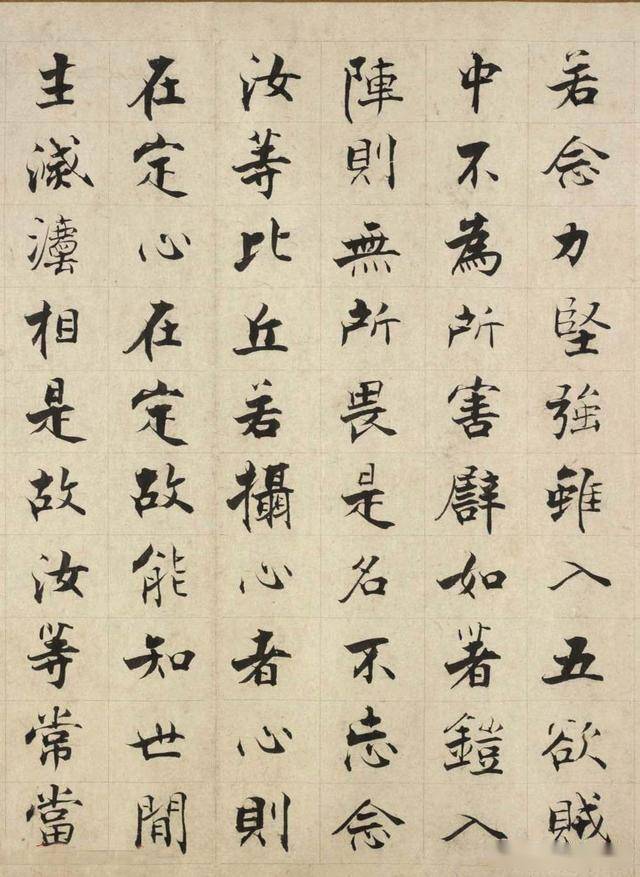 若念力堅強雖入五欲賊
中不為所害譬如著鎧入
陣則無所畏是名不忘念
汝等比丘若攝心者心則
在定心在定故能知世間
生滅灋相是故汝等常當